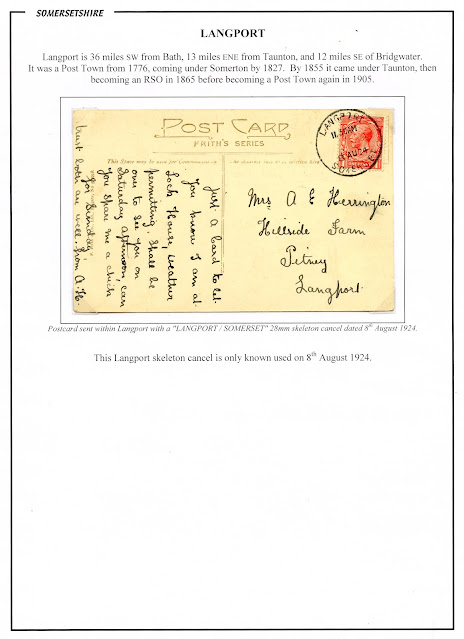 SOMERSETSHIRE
LANGPORT
Langport is 36 miles SW from Bath, 13 miles ENE from Taunton, and 12 miles SE of Bridgwater.
It was a Post Town from 1776, coming under Somerton by 1827. By 1855 it came under Taunton, then
becoming an RSO in 1865 before becoming a Post Town again in 1905.
POST CARD
FRITH'S SERIES
LANGPORT
11.30AM
AU 24
SOMERSET
Just a card to let
you know I am at
Lock House weather
permitting. Shall be
over to see you on
Saturday afternoon, can
you spare me a chick
for Sunday.
trust both are well. from A. H.
Mrs A E Herrington
Hillside Farm
Pitney
Langport.
Postcard sent within Langport with a "LANGPORT / SOMERSET" 28mm skeleton cancel dated 8th August 1924.
This Langport skeleton cancel is only known used on 8th August 1924.